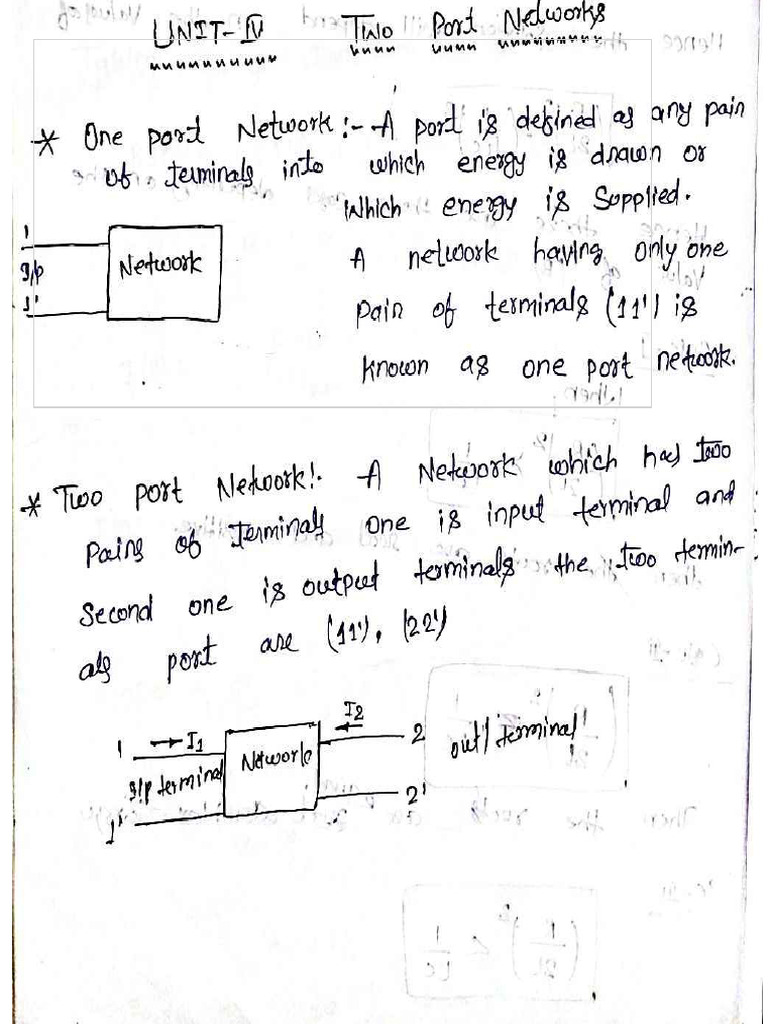 UNIT-IV Two Port Networks
* One port Network:- A port is defined as any pair
of terminals into which energy is drawn or
which energy is supplied.
1
I/p
1'
Network
A network having only one
pair of terminals (11') is
known as one port network.
* Two port Network:- A Network which has two
pairs of terminals one is input terminal and
second one is output terminals the two termin-
als port are (11'), (22')
1 → I1
I/p terminal
1'
Network
← I2
2
2'
out/ terminal
Then the